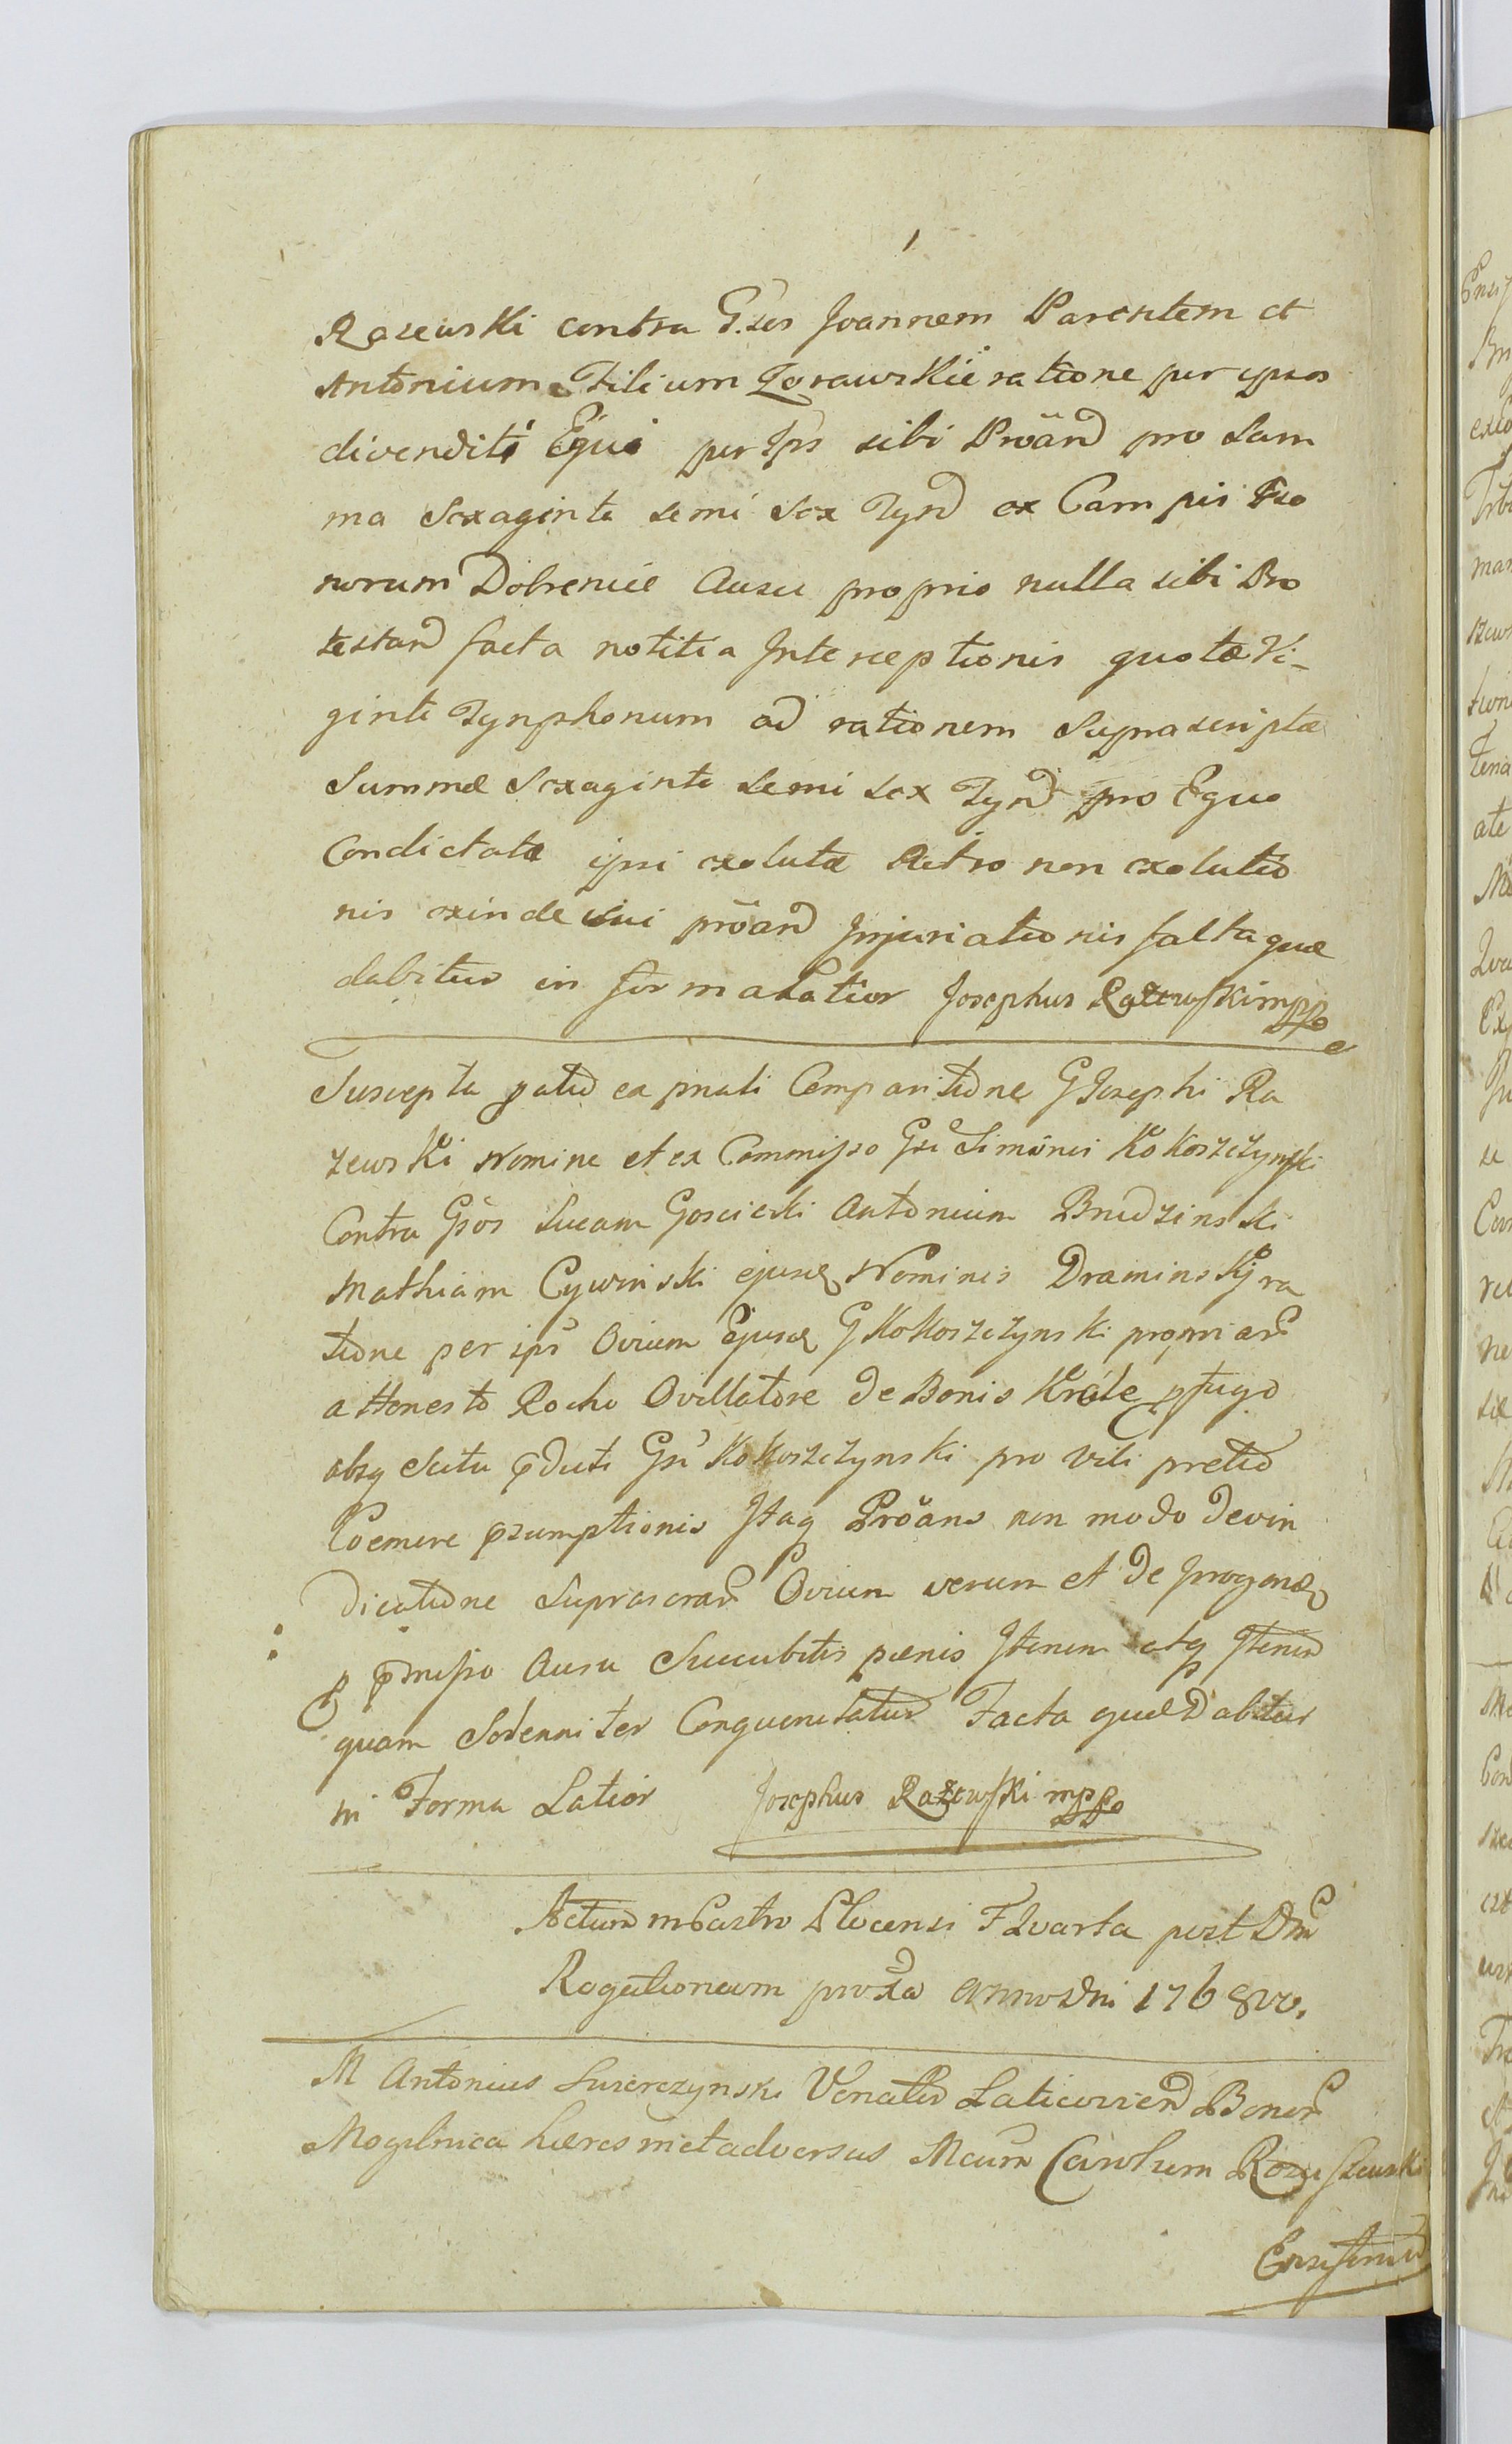 Razewski contra G.sos Joannem Parentem et
Antonium Filium Zorawskie ratione per ipsos
divenditi Equi per Ips sibi Proãnd pro Sum
ma Sexaginta semi sex Tynd ex Campis Bo
norum Dobrenice Ausu proprio nulla sibi Pro
testand facta notitia Interceptionis quotæ Vi-
ginti Tynphonum ad rationem Suprascriptæ
Summæ Sexaginta semi sex Tynd pro Equo
Condictatæ ipsi exolutæ Retro non exolutio
nis exinde sui proãnd Injuriationis facta quæ
dabitur in forma Latior Josephus Razewski mppo
Suscepta ex pnati Comparitione G Josephi Ra
zewski Nomine et ex Commisso Gsi Simonis Kokoszczynski
Contra Gsos Lucam Goscicki Antonium Brudzinski
Mathiam Cywinski ejusq Nominis Draminskij ra
tione per ips Ovium Ejusq G Kokoszczynski propriar
a Honesto Rocho Ovillatore de Bonis Krole pfugo
absq Scitu Gsi Kokoszczynski pro vili pretio
Coemere psumptionis Itaq Proãns non modo devin
dicatione Suprascrar Ovium verum et de
p pmisso Ausu Succubitis pænis Iterum atq Iterum
quam Solenniter Facta quæ Dabitur
in Forma Latior Josephus Razewski mppo
Actum in Castro Plocensi F Quarta post Dni
Rogationum proxa Anno Dni 1768vo.
M Antonius Venator Laticovien Bonor
Mogilnica hæres met adversus Mcum Carolum
Ensiferum